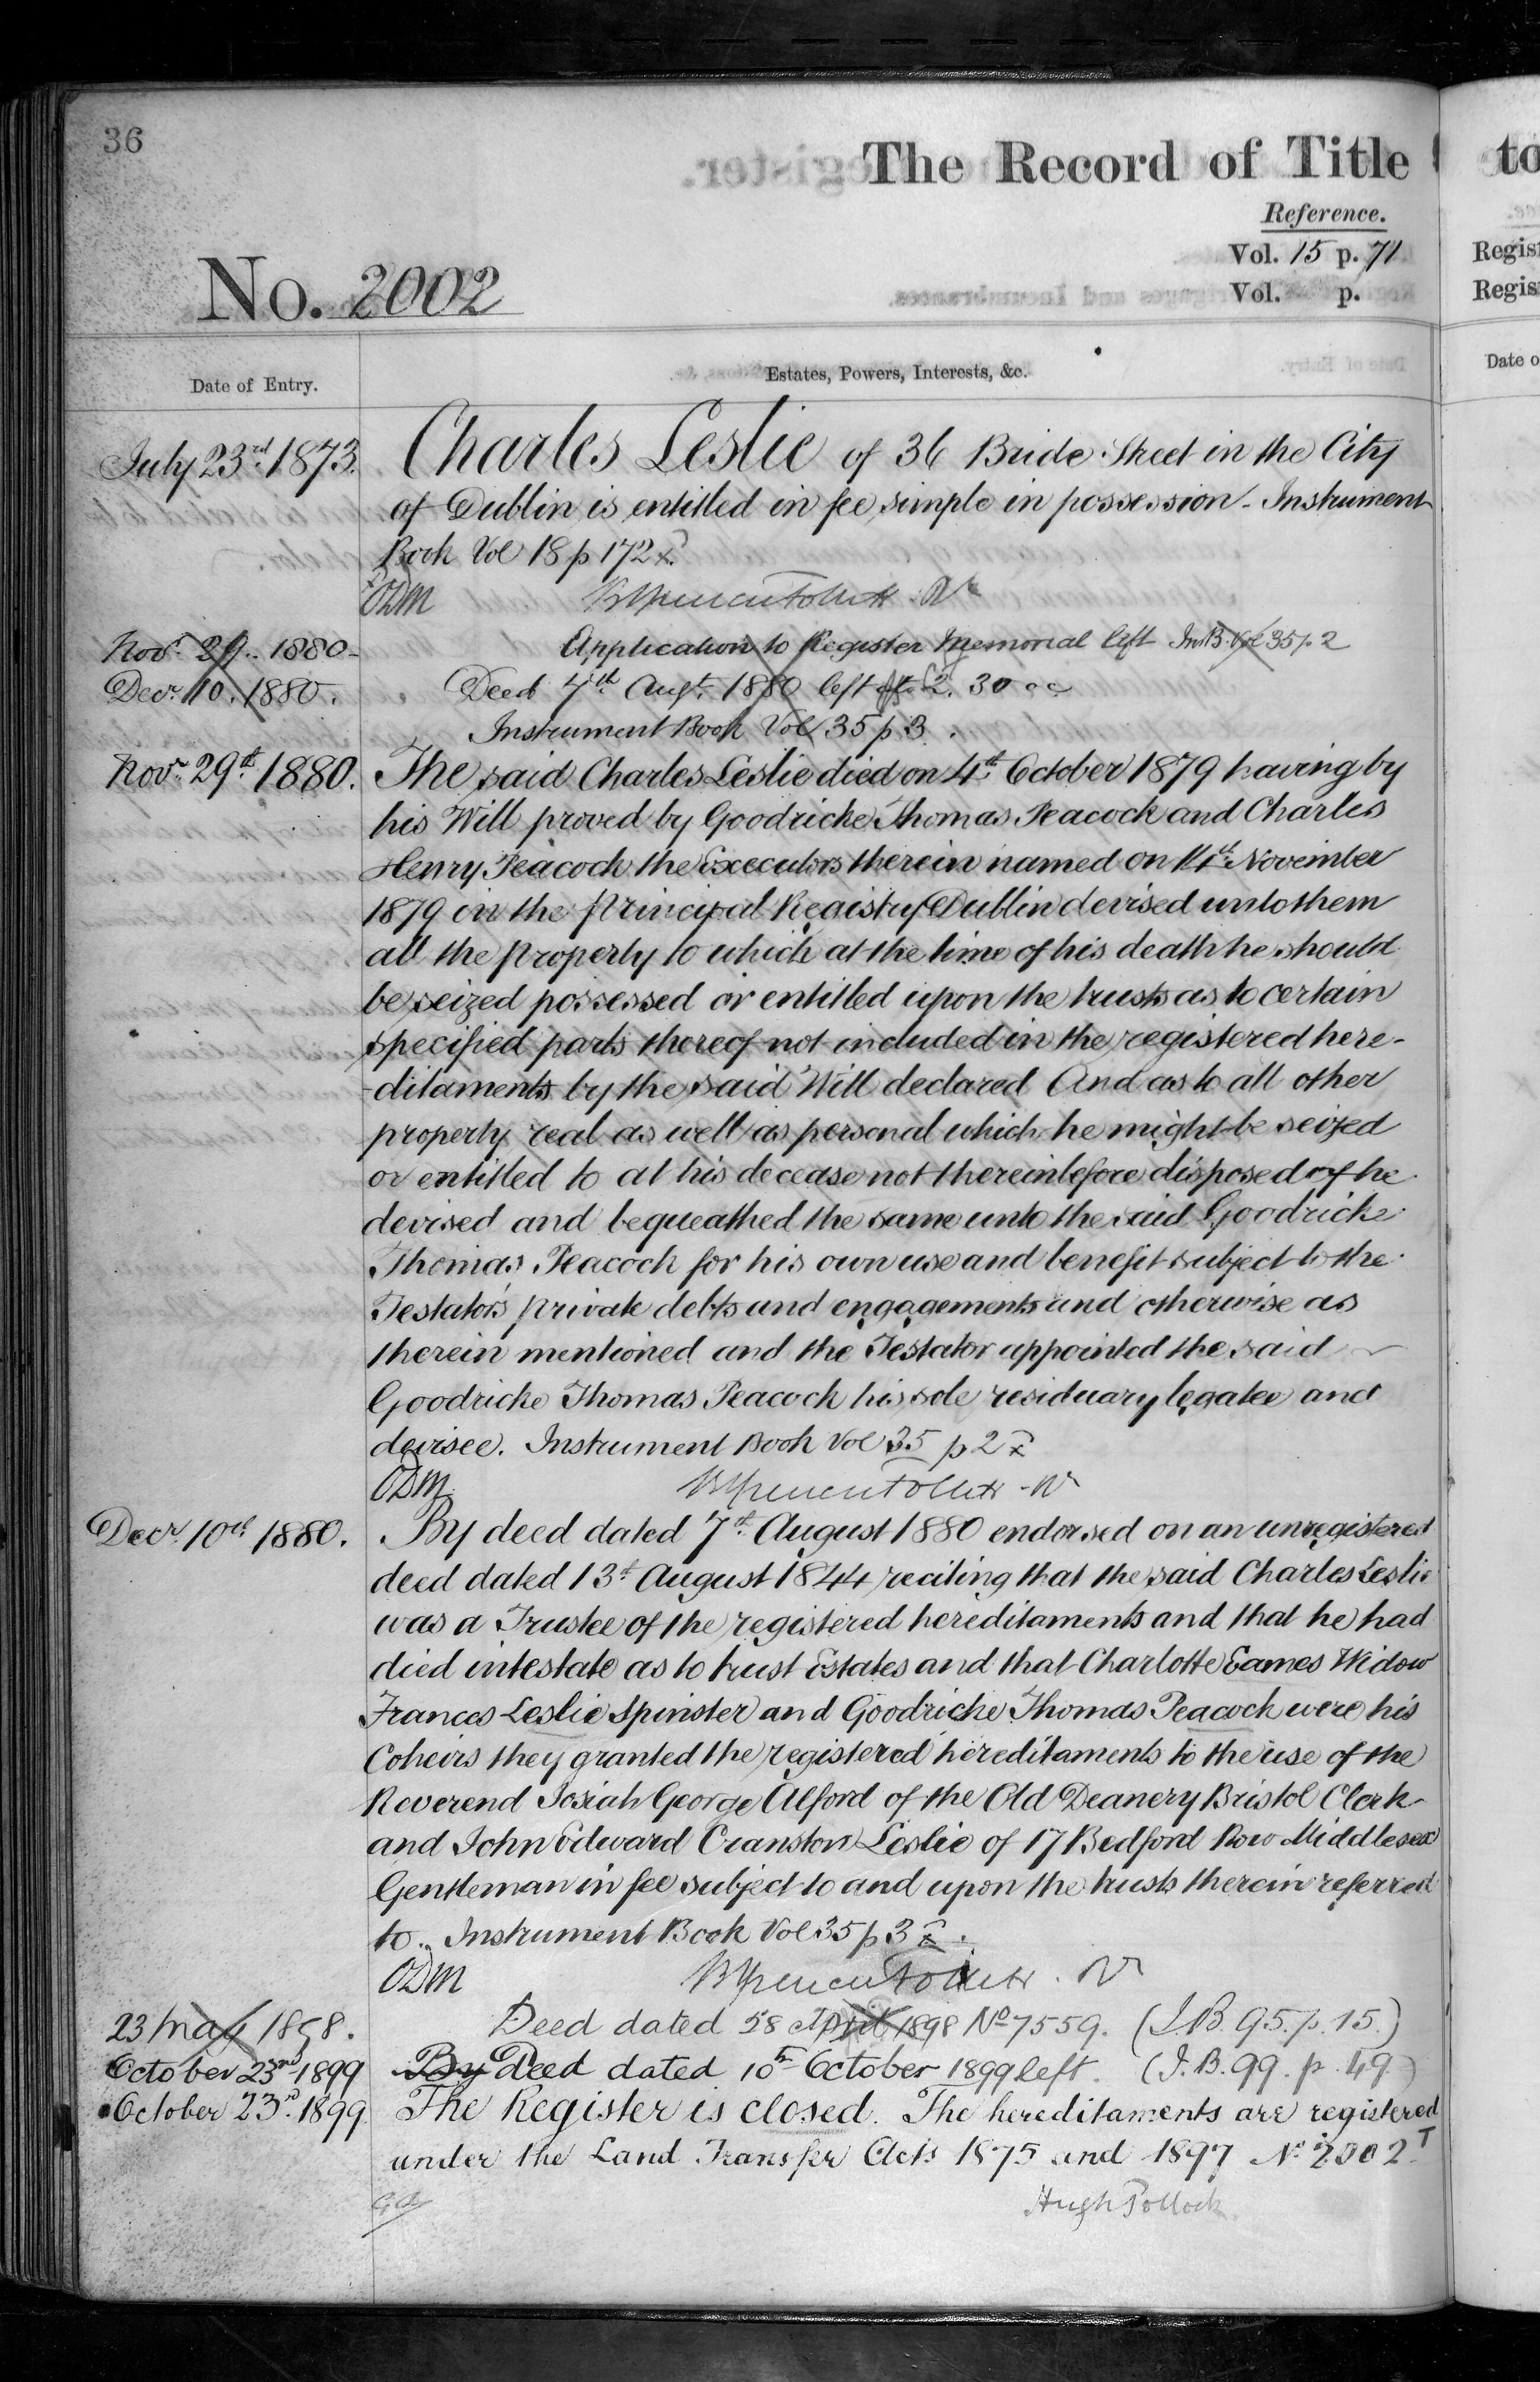 36
The Record of Title
to
Reference.
Vol. 15 p. 71.
Vol. p.
Regis
Regis
No. 2002
Date of Entry.
Estates, Powers, Interests, &c.
Date o
July 23rd. 1873. Charles Leslie of 36 Bride Street in the City
of Dublin is entitled in fee simple in possession - Instrument
Book Vol 18 p 172
ODM
Novr. 29. 1880 - Application to Register Memorial left In. B. Vol 35 p. 2
Decr. 10. 1880. Deed 7th Augt. 1880 left 2. 30
Instrument Book Vol 35 p 3.
Novr. 29th. 1880. The said Charles Leslie died on 4th. October 1879 having by
his Will proved by Goodricke Thomas Peacock and Charles
Henry Peacock the Executors therein named on November
1879 in the Principal Registry Dublin devised unto them
all the property to which at the time of his death he should
be seized possessed or entitled upon the trusts as to certain
specified parts thereof not included in the registered here-
-ditaments by the said Will declared And as to all other
property real as well as personal which he might be seized
or entitled to at his decease not thereinbefore disposed of he
devised and bequeathed the same unto the said Goodricke
Thomas Peacock for his own use and benefit subject to the
Testator's private debts and engagements and otherwise as
therein mentioned and the Testator appointed the said
Goodricke Thomas Peacock his sole residuary legatee and
devisee. Instrument Book Vol 35 p 2
ODM
Decr. 10th 1880. By deed dated 7th. August 1880 endorsed on an unregistered
deed dated 13th August 1844 reciting that the said Charles Leslie
was a Trustee of the registered hereditaments and that he had
died intestate as to trust Estates and that Charlotte Eames Widow
Frances Leslie Spinster and Goodricke Thomas Peacock were his
Coheirs they granted the registered hereditaments to the use of the
Reverend Josiah George Alford of the Old Deanery Bristol Clerk
and John Edward Cranston Leslie of 17 Bedford Row Middlesex
Gentleman in fee subject to and upon the trusts therein referred
to. Instrument Book Vol 35 p 3
ODM
23 May 1898. Deed dated April 1898 No 7559. (I.B. 95. p. 15.)
October 23rd 1899 By Deed dated 10th October 1899 left. (I.B. 99. p. 49.)
October 23rd. 1899. The Register is closed. The hereditaments are registered
under the Land Transfer Acts 1875 and 1897 No. 2002T
Hugh Pollock